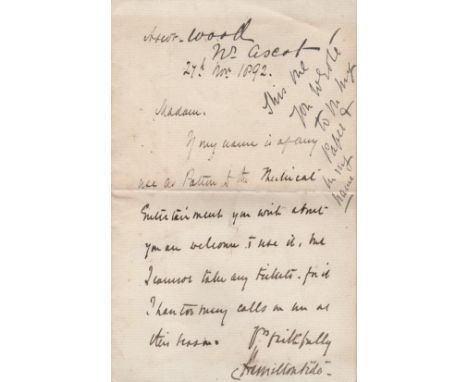 wood
Nr. Ascot
27th Nov. 1892.
Madam.
If my name is of any
use as Patron to the Theatrical
Entertainment you write about
you are welcome to use it, but
I cannot take any tickets. for
I have too many calls on me at
this season.
Yrs faithfully
Hamilton Aïdé
This one
you wrote
to me my
Paper &
in my
name